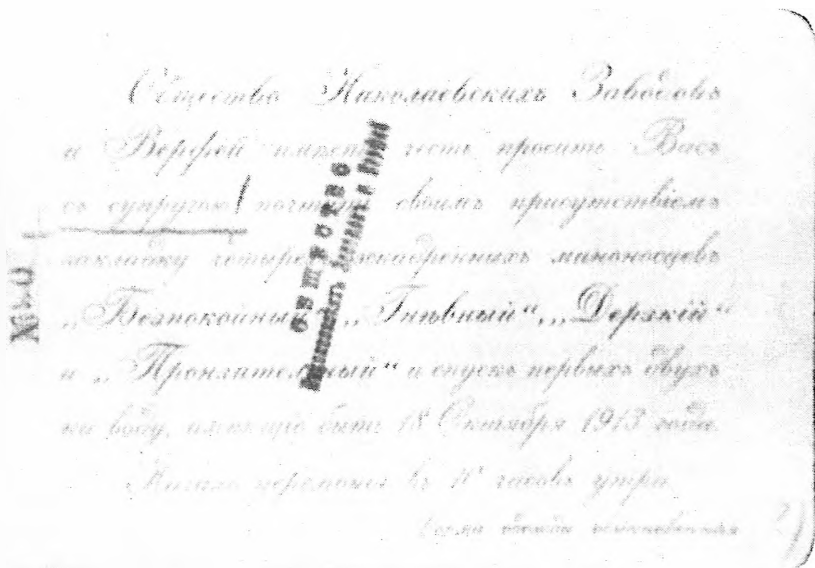 Общество Николаевскихъ Заводовъ
и Верфей имѣетъ честь просить Васъ
съ супругою почтить своимъ присутствіемъ
закладку четырехъ эскадренныхъ миноносцевъ
„Безпокойный“, „Гнѣвный“, „Дерзкій“
и „Пронзательный“ и спускъ первыхъ двухъ
на воду, имѣющіе быть 18 Октября 1913 года.
Начало церемоніи въ 11 часовъ утра.
Форма одежды обыкновенная
ОБЩЕСТВО
Николаевскихъ Заводовъ и Верфей